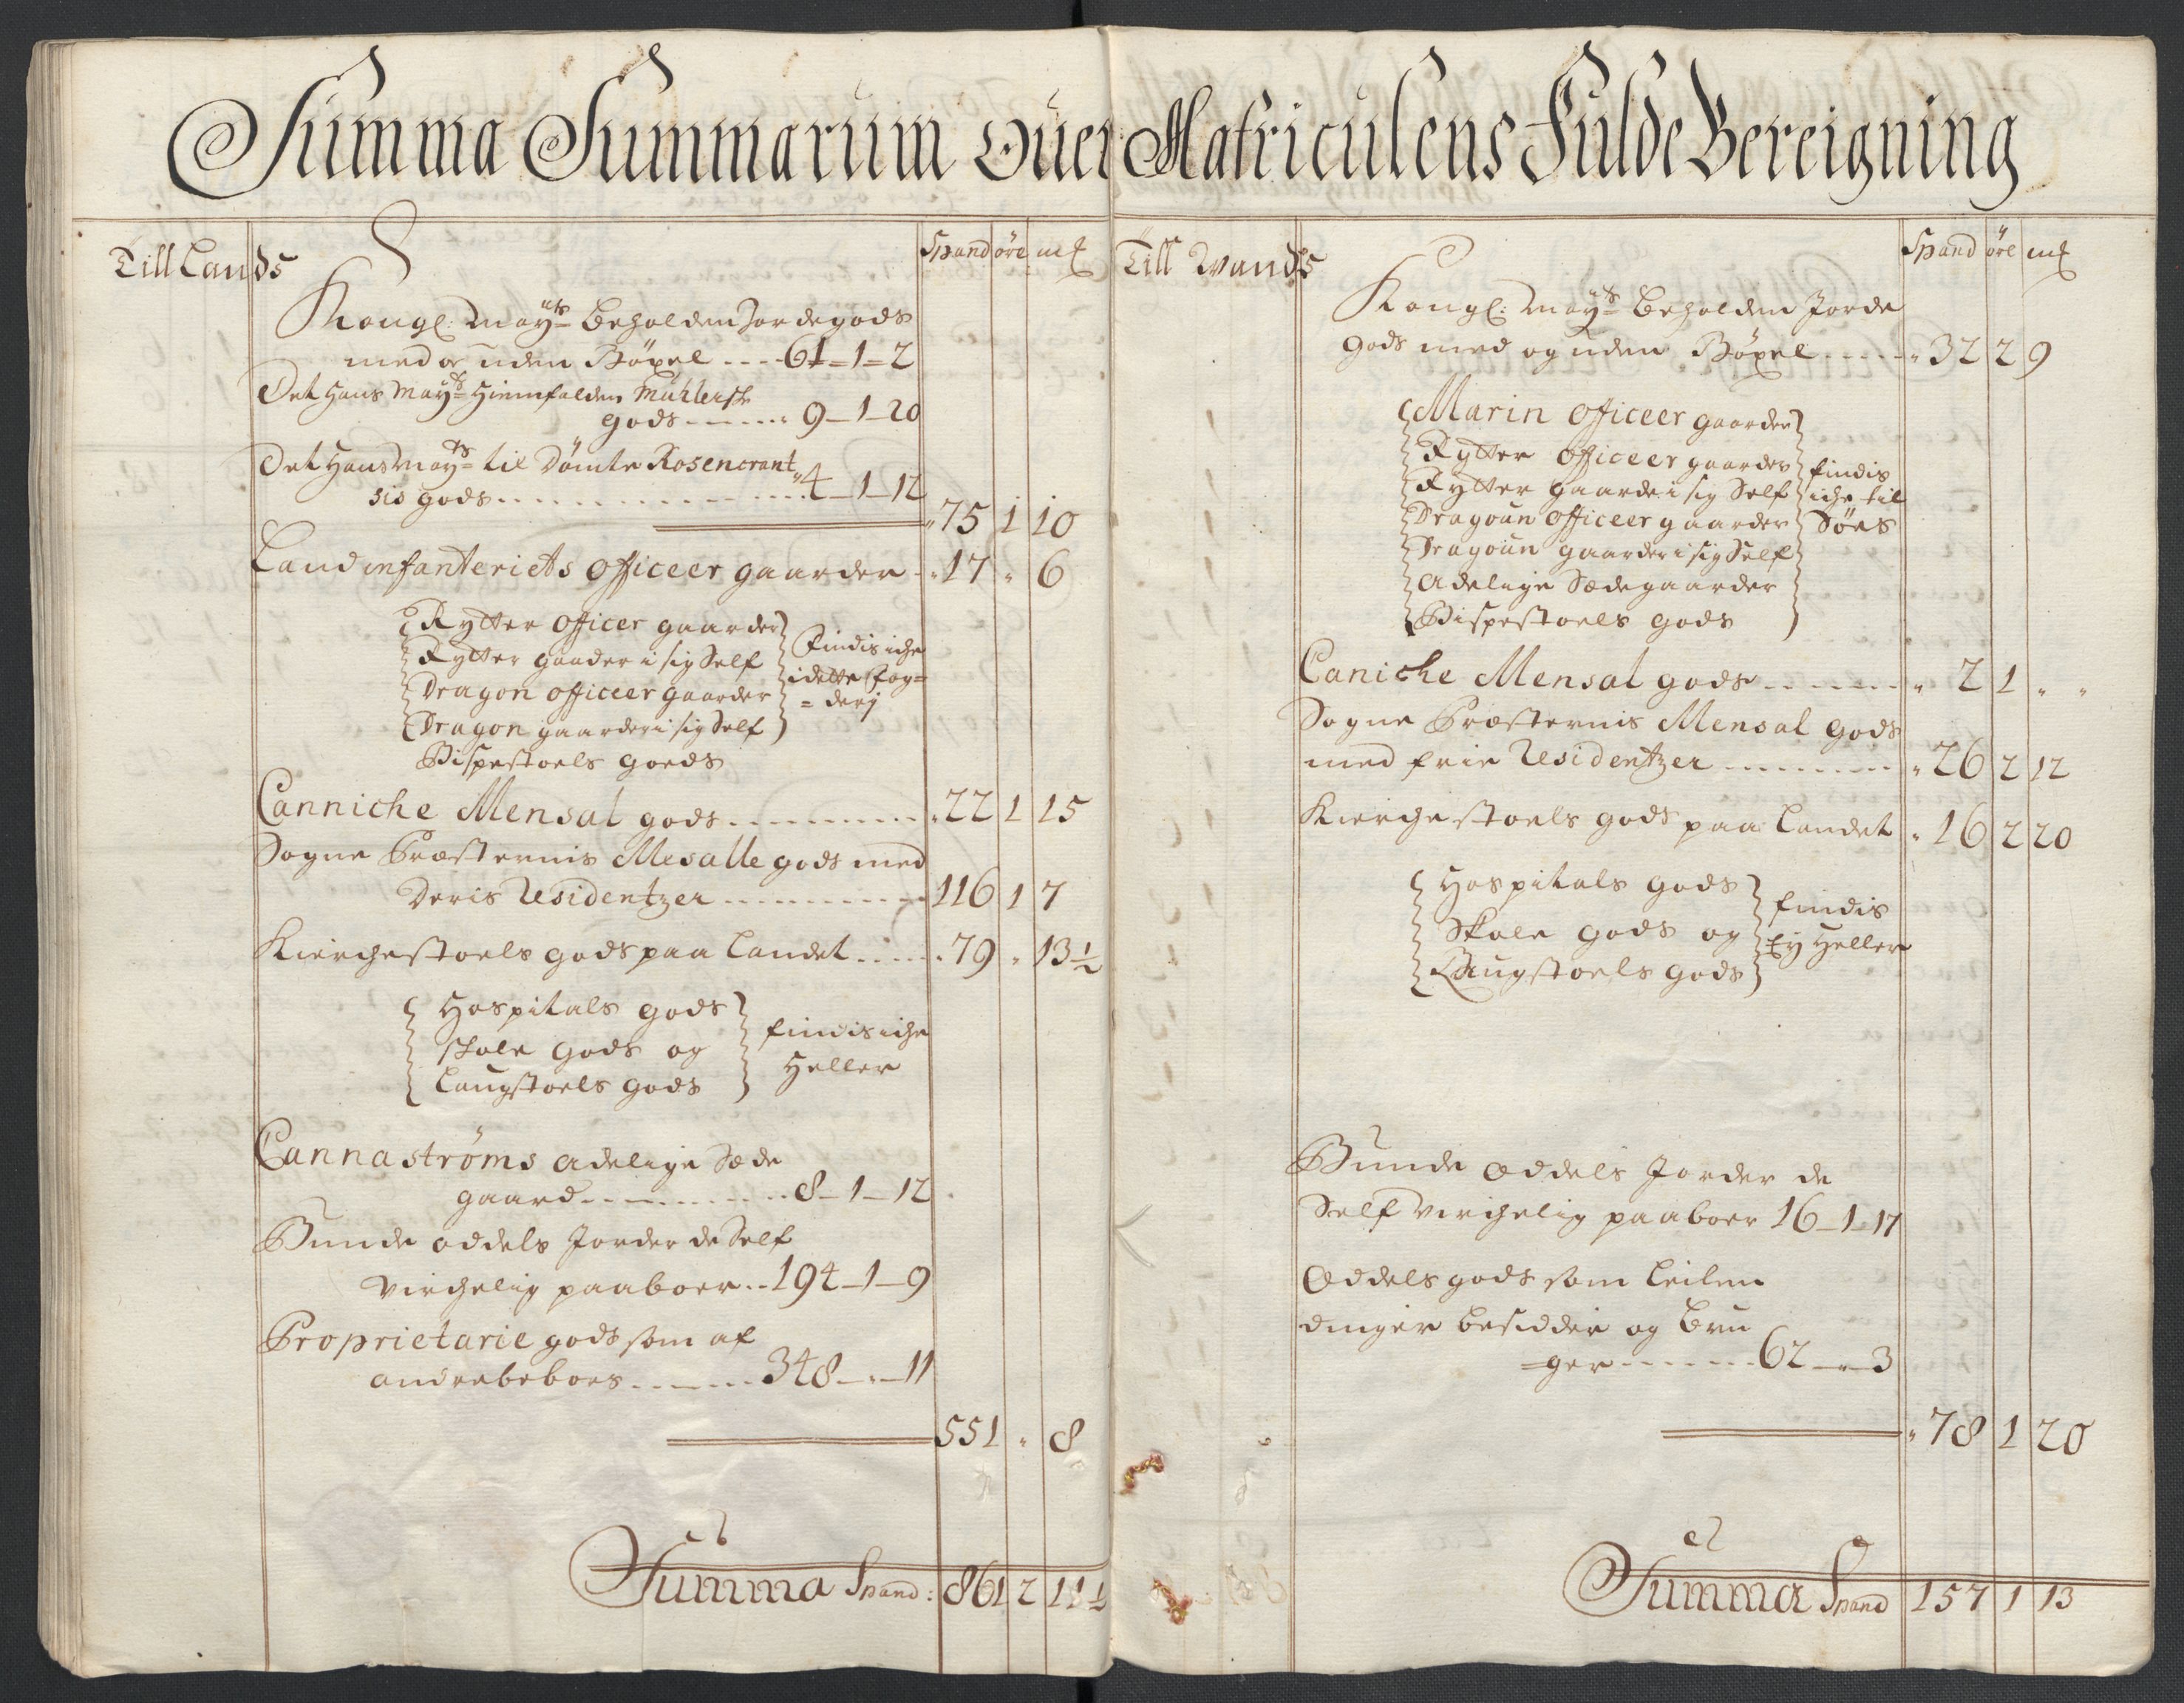 Summa Summarum Ouer Matriculens Fulde Bereigning
Till Lands
Spand öre mk
Kongl: Mayts beholden Jordegods
med og uden Böxel ---- 61-1-2
Det Hans Mayts Hiemfalden Mühlensk
gods ------ 9-1-20
Det Hans Mayts til Dömte Rosencrant
sis gods ------ 4-1-12
75 1 10
Land infanteriets officeer gaarder -- 17 " 6
Rytter officer gaarder
Rytter gaader i sig Self
Dragon officeer gaarder
Dragon gaarder i sig Self
Bispestoels goeds
Findis iche
i dette fog=
=derj
Canniche Mensal gods ------ 22 1 15
Sogne Præsternis Mesalle gods med
Deris Residentzer ------ 116 1 7
Kierchestoels gods paa Landet ---- 79 " 13½
Hospitals gods
Skole gods og
Laugstoels gods
findis iche
Heller
Cannaströms adelige Sæde
gaard ------ 8-1-12
Bunde oddels Jorder de Self
virchelig paaboer -- 194-1-9
Proprietarie gods som af
andre beboes ---- 348-"-11
551 " 8
Summa Spand: 861 2 11½
Till Wands
Spand öre mk
Kongl: Mayts beholden Jorde
gods med og uden Böxel ---- 32 2 9
Marin officeer gaarder
Rytter officeer gaarder
Rytter gaarde i sig Self
Dragoun officeer gaarder
Dragoun gaarder i sig Self
Adelige Sædegaarder
Bispestoels gods
findis
iche til
Söes
Caniche Mensal gods ------ 2 1 "
Sogne Præsternis Mensal gods
med frie Residentzer ------ 26 2 12
Kierchestoels gods paa Landet " 16 2 20
Hospitals gods
Skole gods og
Laugstoels gods
findis
Ey Heller
Bunde oddels Jorder de
Self virchelig paaboer 16-1-17
Oddels gods som Leilen
dinger besidder og bru
=ger ------ 62-"-3
78 1 20
Summa Spand 157 1 13